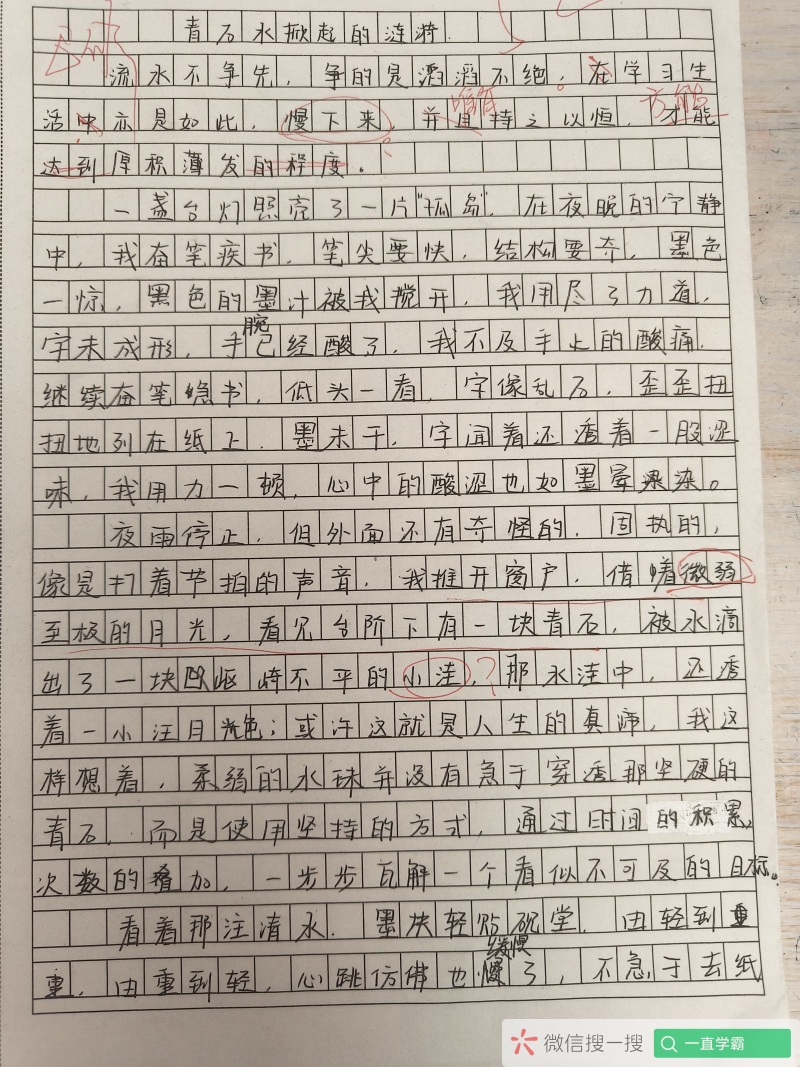 青石水掀起的涟漪
流水不争先，争的是滔滔不绝。在学习生
活中亦是如此，慢下来，并且持之以恒，才能
达到厚积薄发的程度。
一盏台灯照亮了一片"孤岛"，在夜晚的宁静
中，我奋笔疾书，笔尖要快，结构要奇，墨色
一惊，黑色的墨汁被我搅开，我用尽了力道，
字未成形，手腕已经酸了，我不及手上的酸痛，
继续奋笔急书，低头一看，字像乱石，歪歪扭
扭地列在纸上，墨未干，字闻着还透着一股涩
味，我用力一顿，心中的酸涩也如墨晕染染。
夜雨停止，但外面还有奇怪的，固执的，
像是打着节拍的声音，我推开窗户，借着微弱
至极的月光，看见台阶下有一块青石，被水滴
出了一块凹岖崎不平的小洼，那水洼中，还透
着一小汪月光色；或许这就是人生的真谛，我这
样想着，柔弱的水珠并没有急于穿透那坚硬的
青石，而是使用坚持的方式，通过时间的积累，
次数的叠加，一步步瓦解一个看似不可及的目标。
看着那注清水，墨块轻贴砚堂，由轻到重
重，由重到轻，心跳仿佛也缓慢了，不急于去纸
方能
微信搜一搜
一直学霸